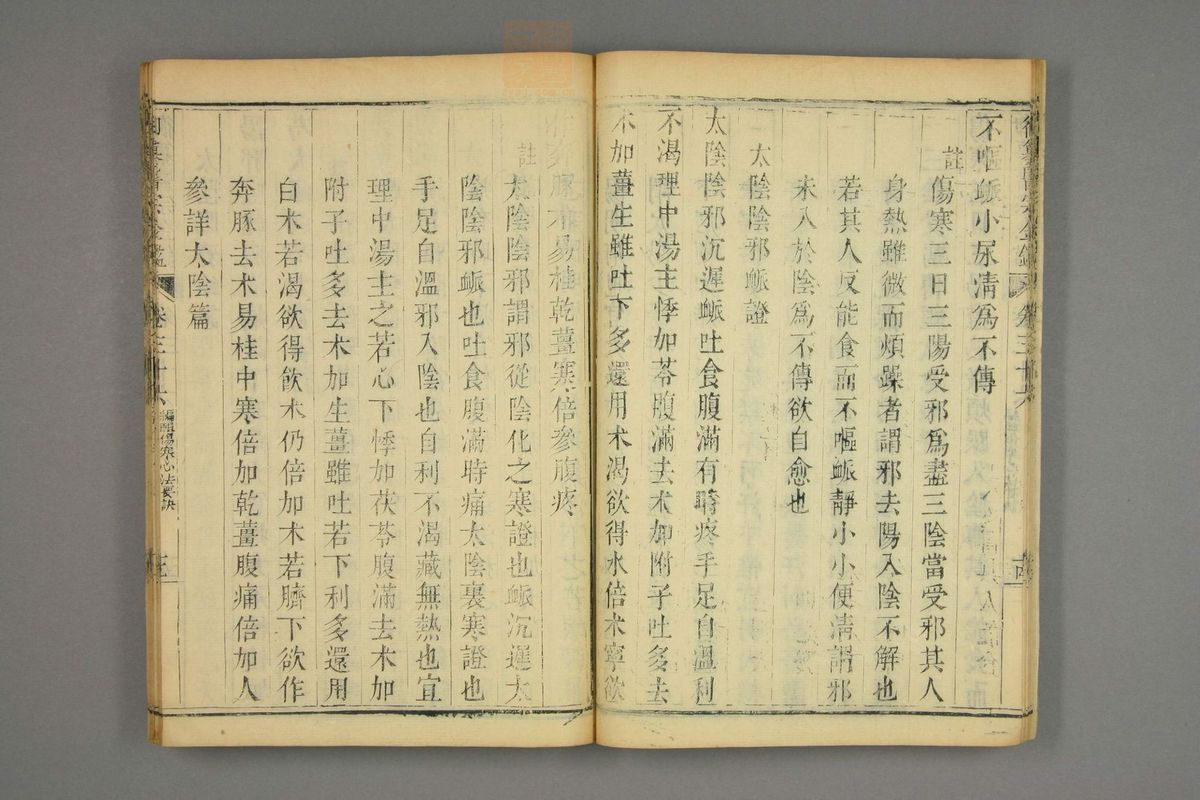 不嘔䘑小尿清爲不傳
註
傷寒三日三陽受邪爲盡三陰當受邪其人
身熱雖微而煩躁者謂邪去陽入陰不解也
若其人反能食而不嘔䘑靜小小便清謂邪
未入於陰爲不傳欲自愈也
太陰陰邪䘑證
太陰陰邪沉遲䘑吐食腹滿有時疼手足自溫利
不渴理中湯主悸加苓腹滿去朮加附子吐多去
朮加薑生雖吐下多還用朮渴欲得水倍朮寧欲
豚 朮易桂乾薑寒倍參腹疼
註
太陰陰邪謂邪從陰化之寒證也䘑沉遲太
陰陰邪䘑也吐食腹滿時痛太陰裏寒證也
手足自溫邪入陰也自利不渴藏無熱也宜
理中湯主之若心下悸加茯苓腹滿去朮加
附子吐多去朮加生薑雖吐若下利多還用
白朮若渴欲得飲水仍倍加朮若臍下欲作
奔豚去朮易桂中寒倍加乾薑腹痛倍加人
參詳太陰篇
御纂醫宗金鑑
卷三十六
編輯傷寒心法要訣